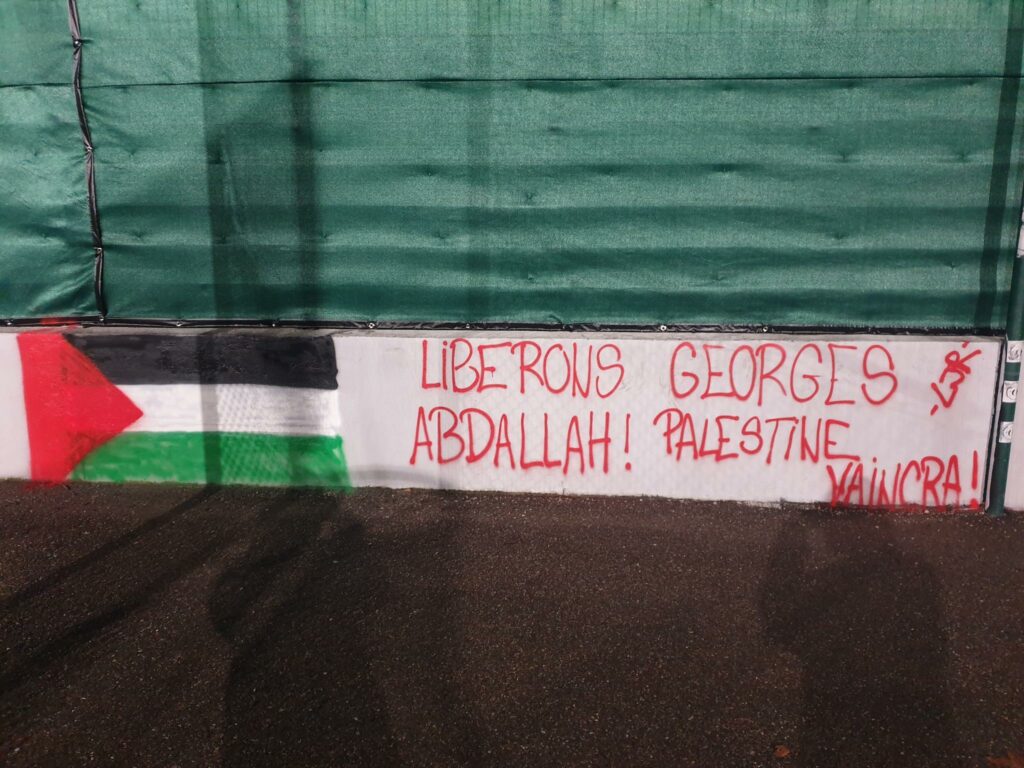 LIBERONS GEORGES
ABDALLAH! PALESTINE
VAINCRA!